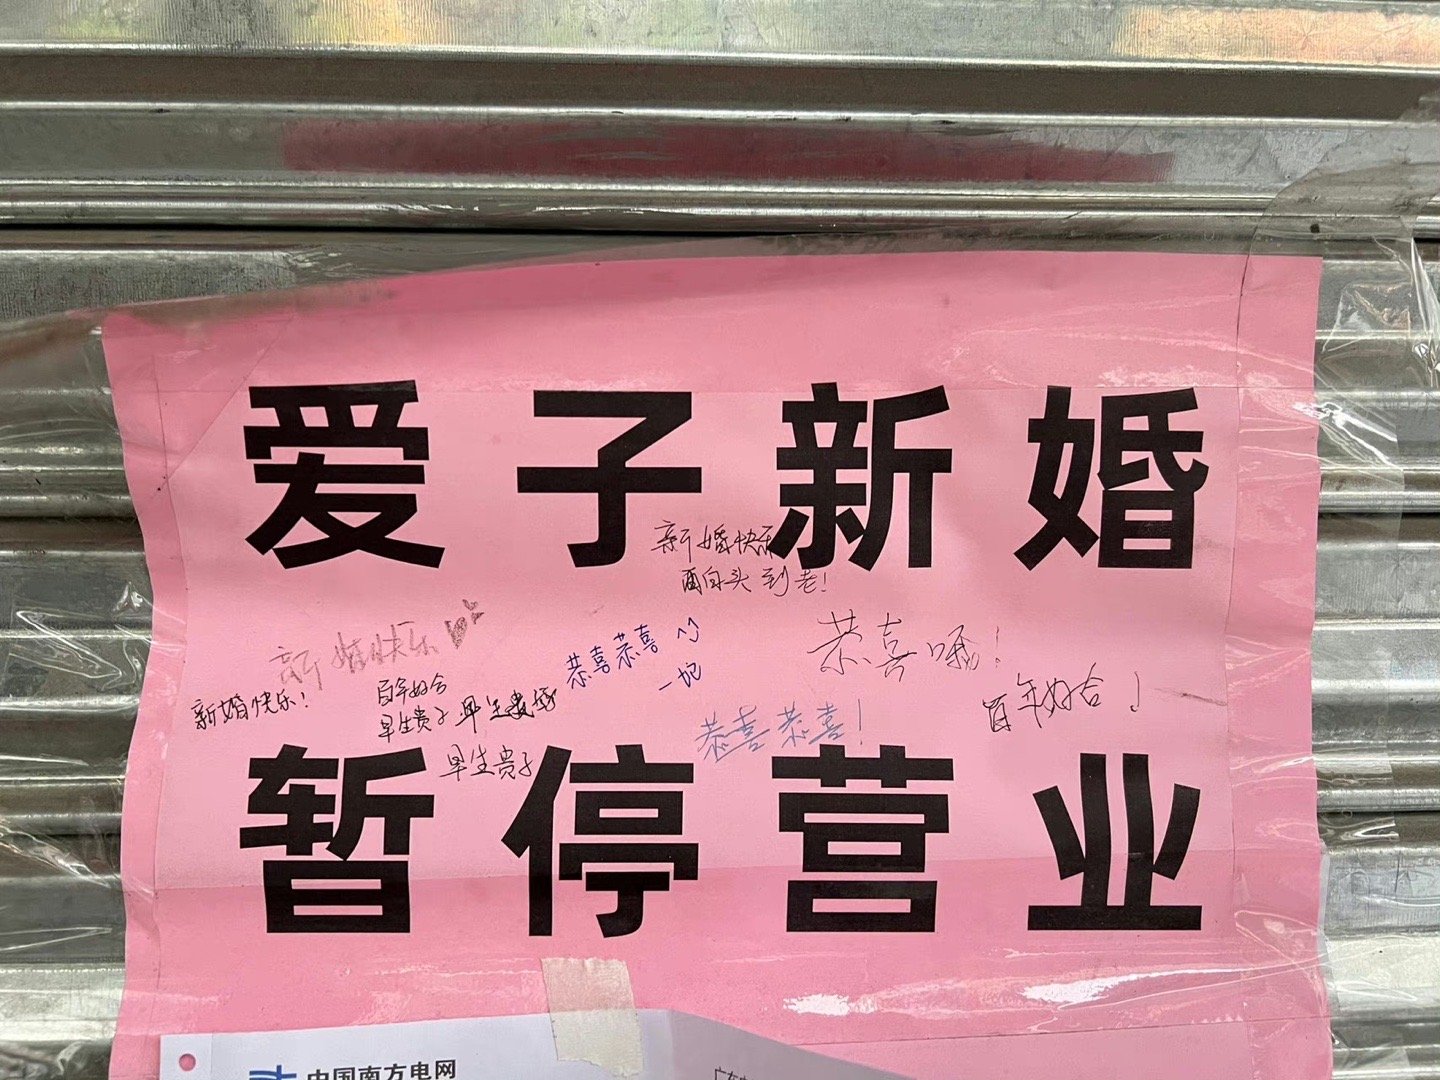 爱子新婚
新婚快乐
白头到老!
新婚快乐
恭喜恭喜 ^J
恭喜哦!
新婚快乐!
百年好合
早生贵子 早生贵子
早生贵子
恭喜恭喜!
百年好合!
暂停营业
中国南方电网